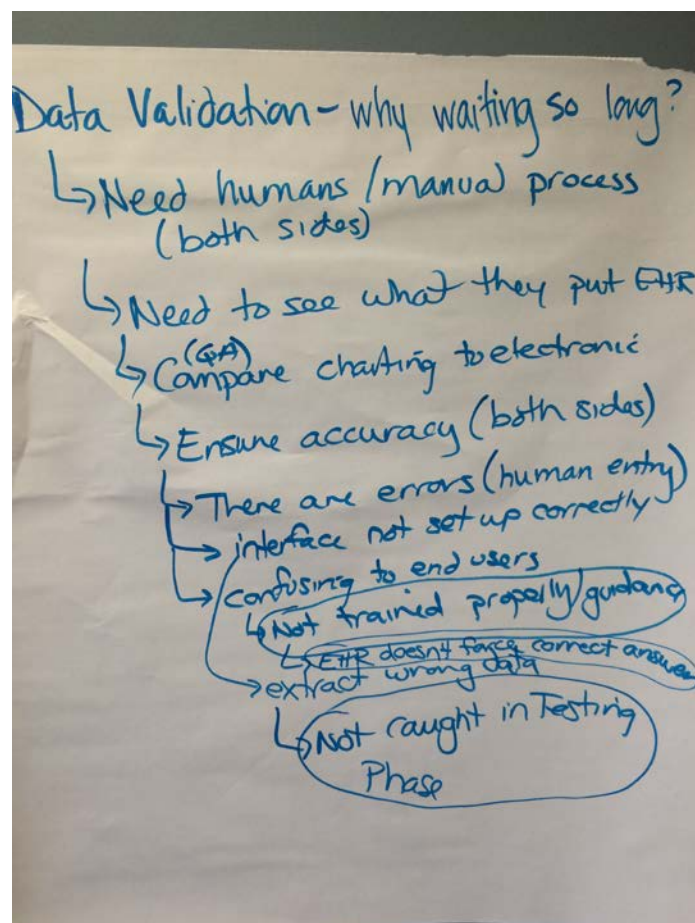 Data Validation - why waiting so long?
↳ Need humans / manual process
(both sides)
↳ Need to see what they put EHR
(QA)
↳ Compare charting to electronic
↳ Ensure accuracy (both sides)
→ There are errors (human entry)
→ interface not set up correctly
→ confusing to end users
↳ Not trained properly/guidance
↳ EHR doesn't force correct answer
→ extract wrong data
↳ Not caught in Testing
Phase